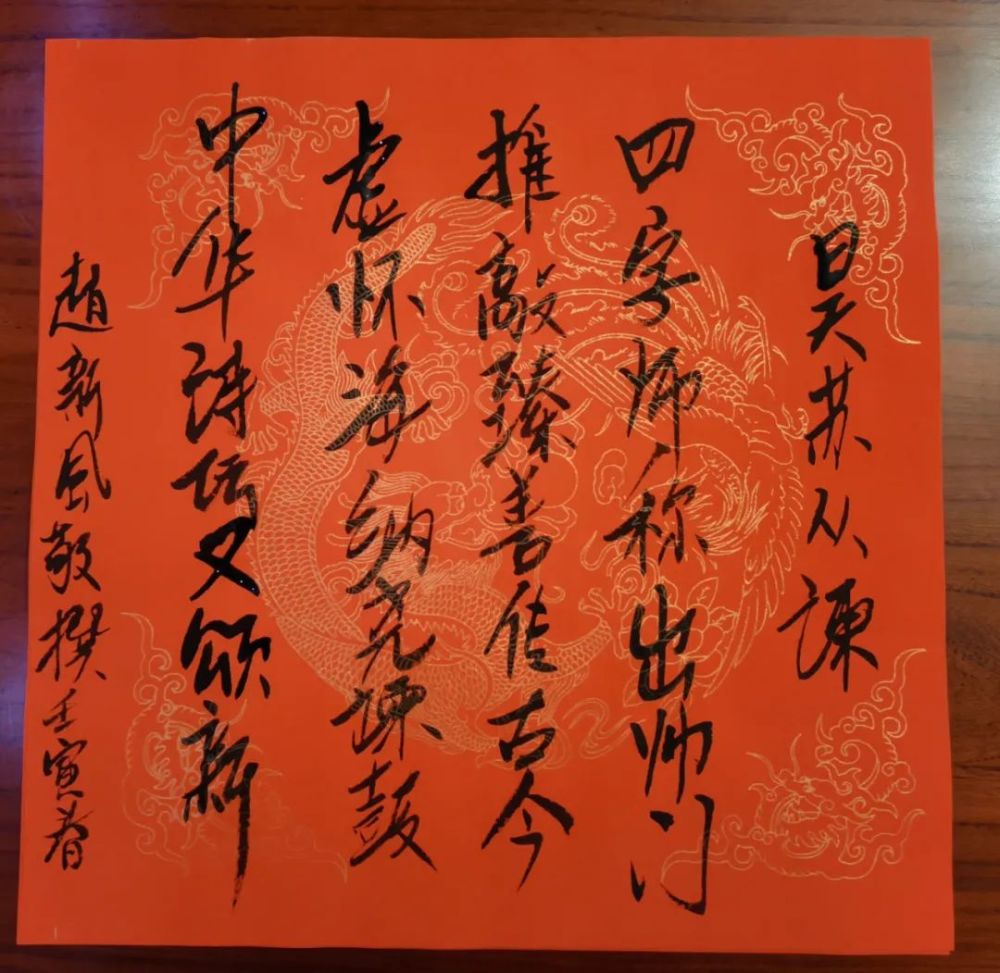 昊苏从谏
四字师称出帅门
推敲臻善传古今
虚怀海纳尧谏鼓
中华诗坛又颂新
趙新風敬撰壬寅春